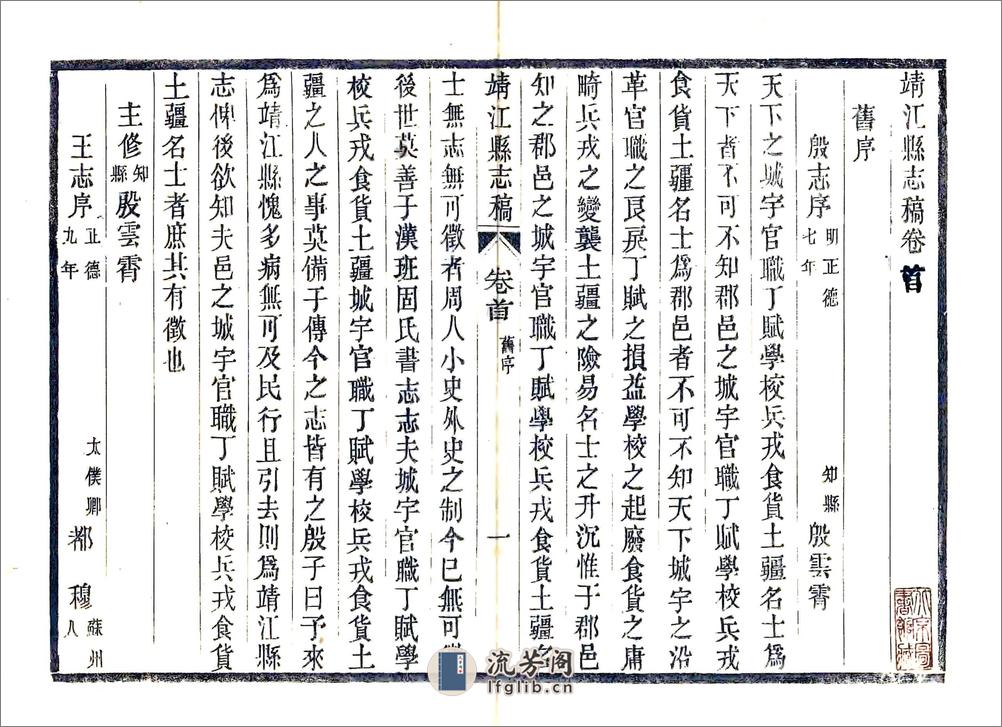 靖江縣志稿卷首
舊序
殷志序 明正德七年 知縣 殷雲霄
天下之城宇官職丁賦學校兵戎食貨土疆名士爲
天下者不可不知郡邑之城宇官職丁賦學校兵戎
食貨土疆名士爲郡邑者不可不知天下城宇之沿
革官職之良戾丁賦之損益學校之起廢食貨之庸
畸兵戎之變襲土疆之險易名士之升沉惟于郡邑
知之郡邑之城宇官職丁賦學校兵戎食貨土疆名
靖江縣志稿 卷首 舊序 一
士無志無可徵者周人小史外史之制今已無可徵
後世莫善于漢班固氏書志志夫城宇官職丁賦學
校兵戎食貨土疆城宇官職丁賦學校兵戎食貨土
疆之人之事莫備于傳今之志皆有之殷子曰予來
爲靖江縣愧多病無可及民行且引去則爲靖江縣
志俾後欲知夫邑之城宇官職丁賦學校兵戎食貨
土疆名士者庶其有徵也
主修 知縣 殷雲霄
王志序 正德九年 太僕卿 都穆 蘇州人
流芳阁
lfglib.cn